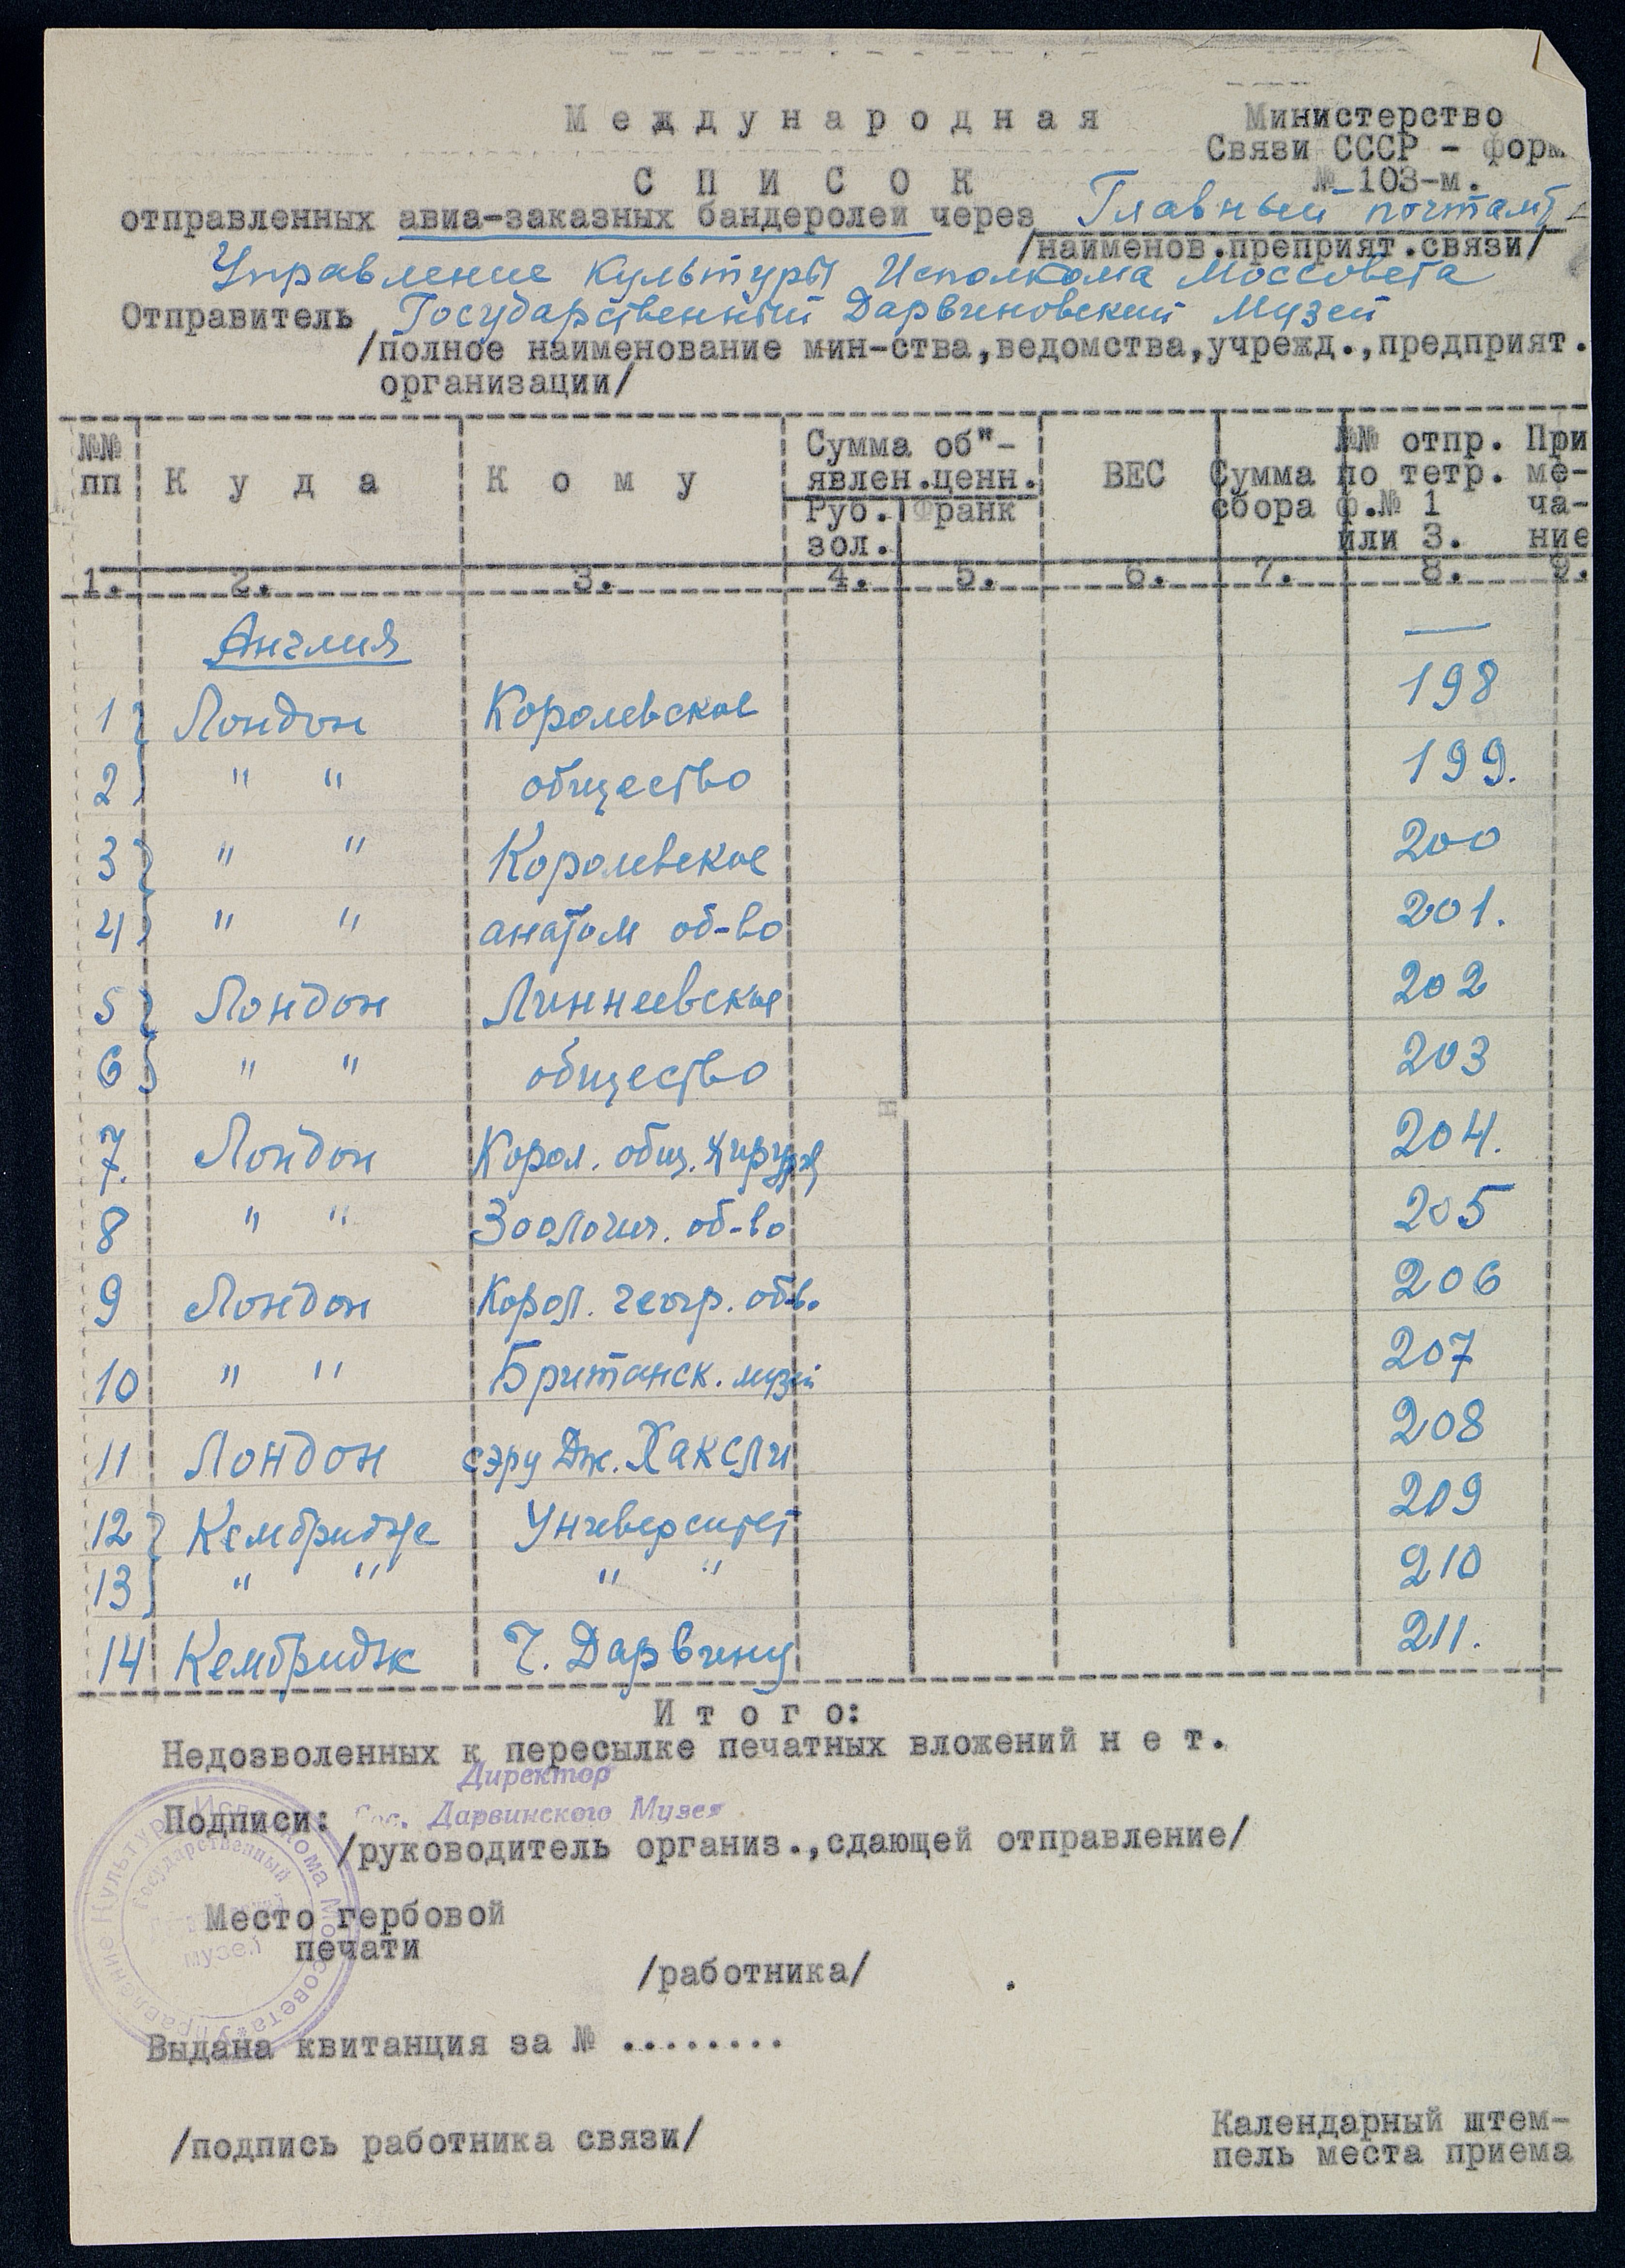 Международная
Министерство
Связи СССР - форм
№ 103-м.
СПИСОК
отправленных авиа-заказных бандеролей через Главный почтамт
/наименов.преприят.связи/
Управление Культуры Исполкома Моссовета
Отправитель Государственный Дарвиновский Музей
/полное наименование мин-ства,ведомства,учрежд.,предприят.
организации/
№№ пп | Куда | Кому | Сумма об"-явлен.ценн. Руб. зол. | Франк | ВЕС | Сумма сбора | №№ отпр. по тетр. ф.№ 1 или 3. | При ме- ча- ние
1. 2. 3. 4. 5. 6. 7. 8. 9.
Англия —
1 Лондон Королевское 198
2 " " общество 199.
3 " " Королевское 200
4 " " анатом об-во 201.
5 Лондон Линнеевское 202
6 " " общество 203
7. Лондон Корол. общ. хирург 204.
8 " " Зоологич. об-во 205
9 Лондон Корол. геогр. об-во 206
10 " " Британск. музей 207
11 Лондон сэру Дж. Хаксли 208
12 Кембридже Университет 209
13 " " " " 210
14 Кембридж Ч. Дарвину 211.
Итого:
Недозволенных к пересылке печатных вложений нет.
Директор
Подписи: Гос. Дарвинского Музея
/руководитель организ.,сдающей отправление/
Управление Культуры Исполкома Моссовета
Государственный
музей
Место гербовой
печати
/работника/
Выдана квитанция за № ........
/подпись работника связи/
Календарный штем-
пель места приема